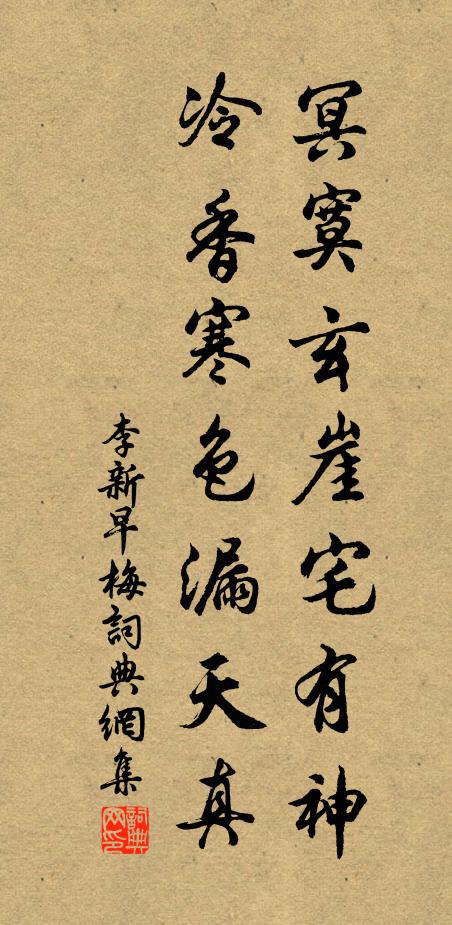 冥寞玄崖宅有神
冷香寒色漏天真
李新早梅詞典網集
詞典
网印